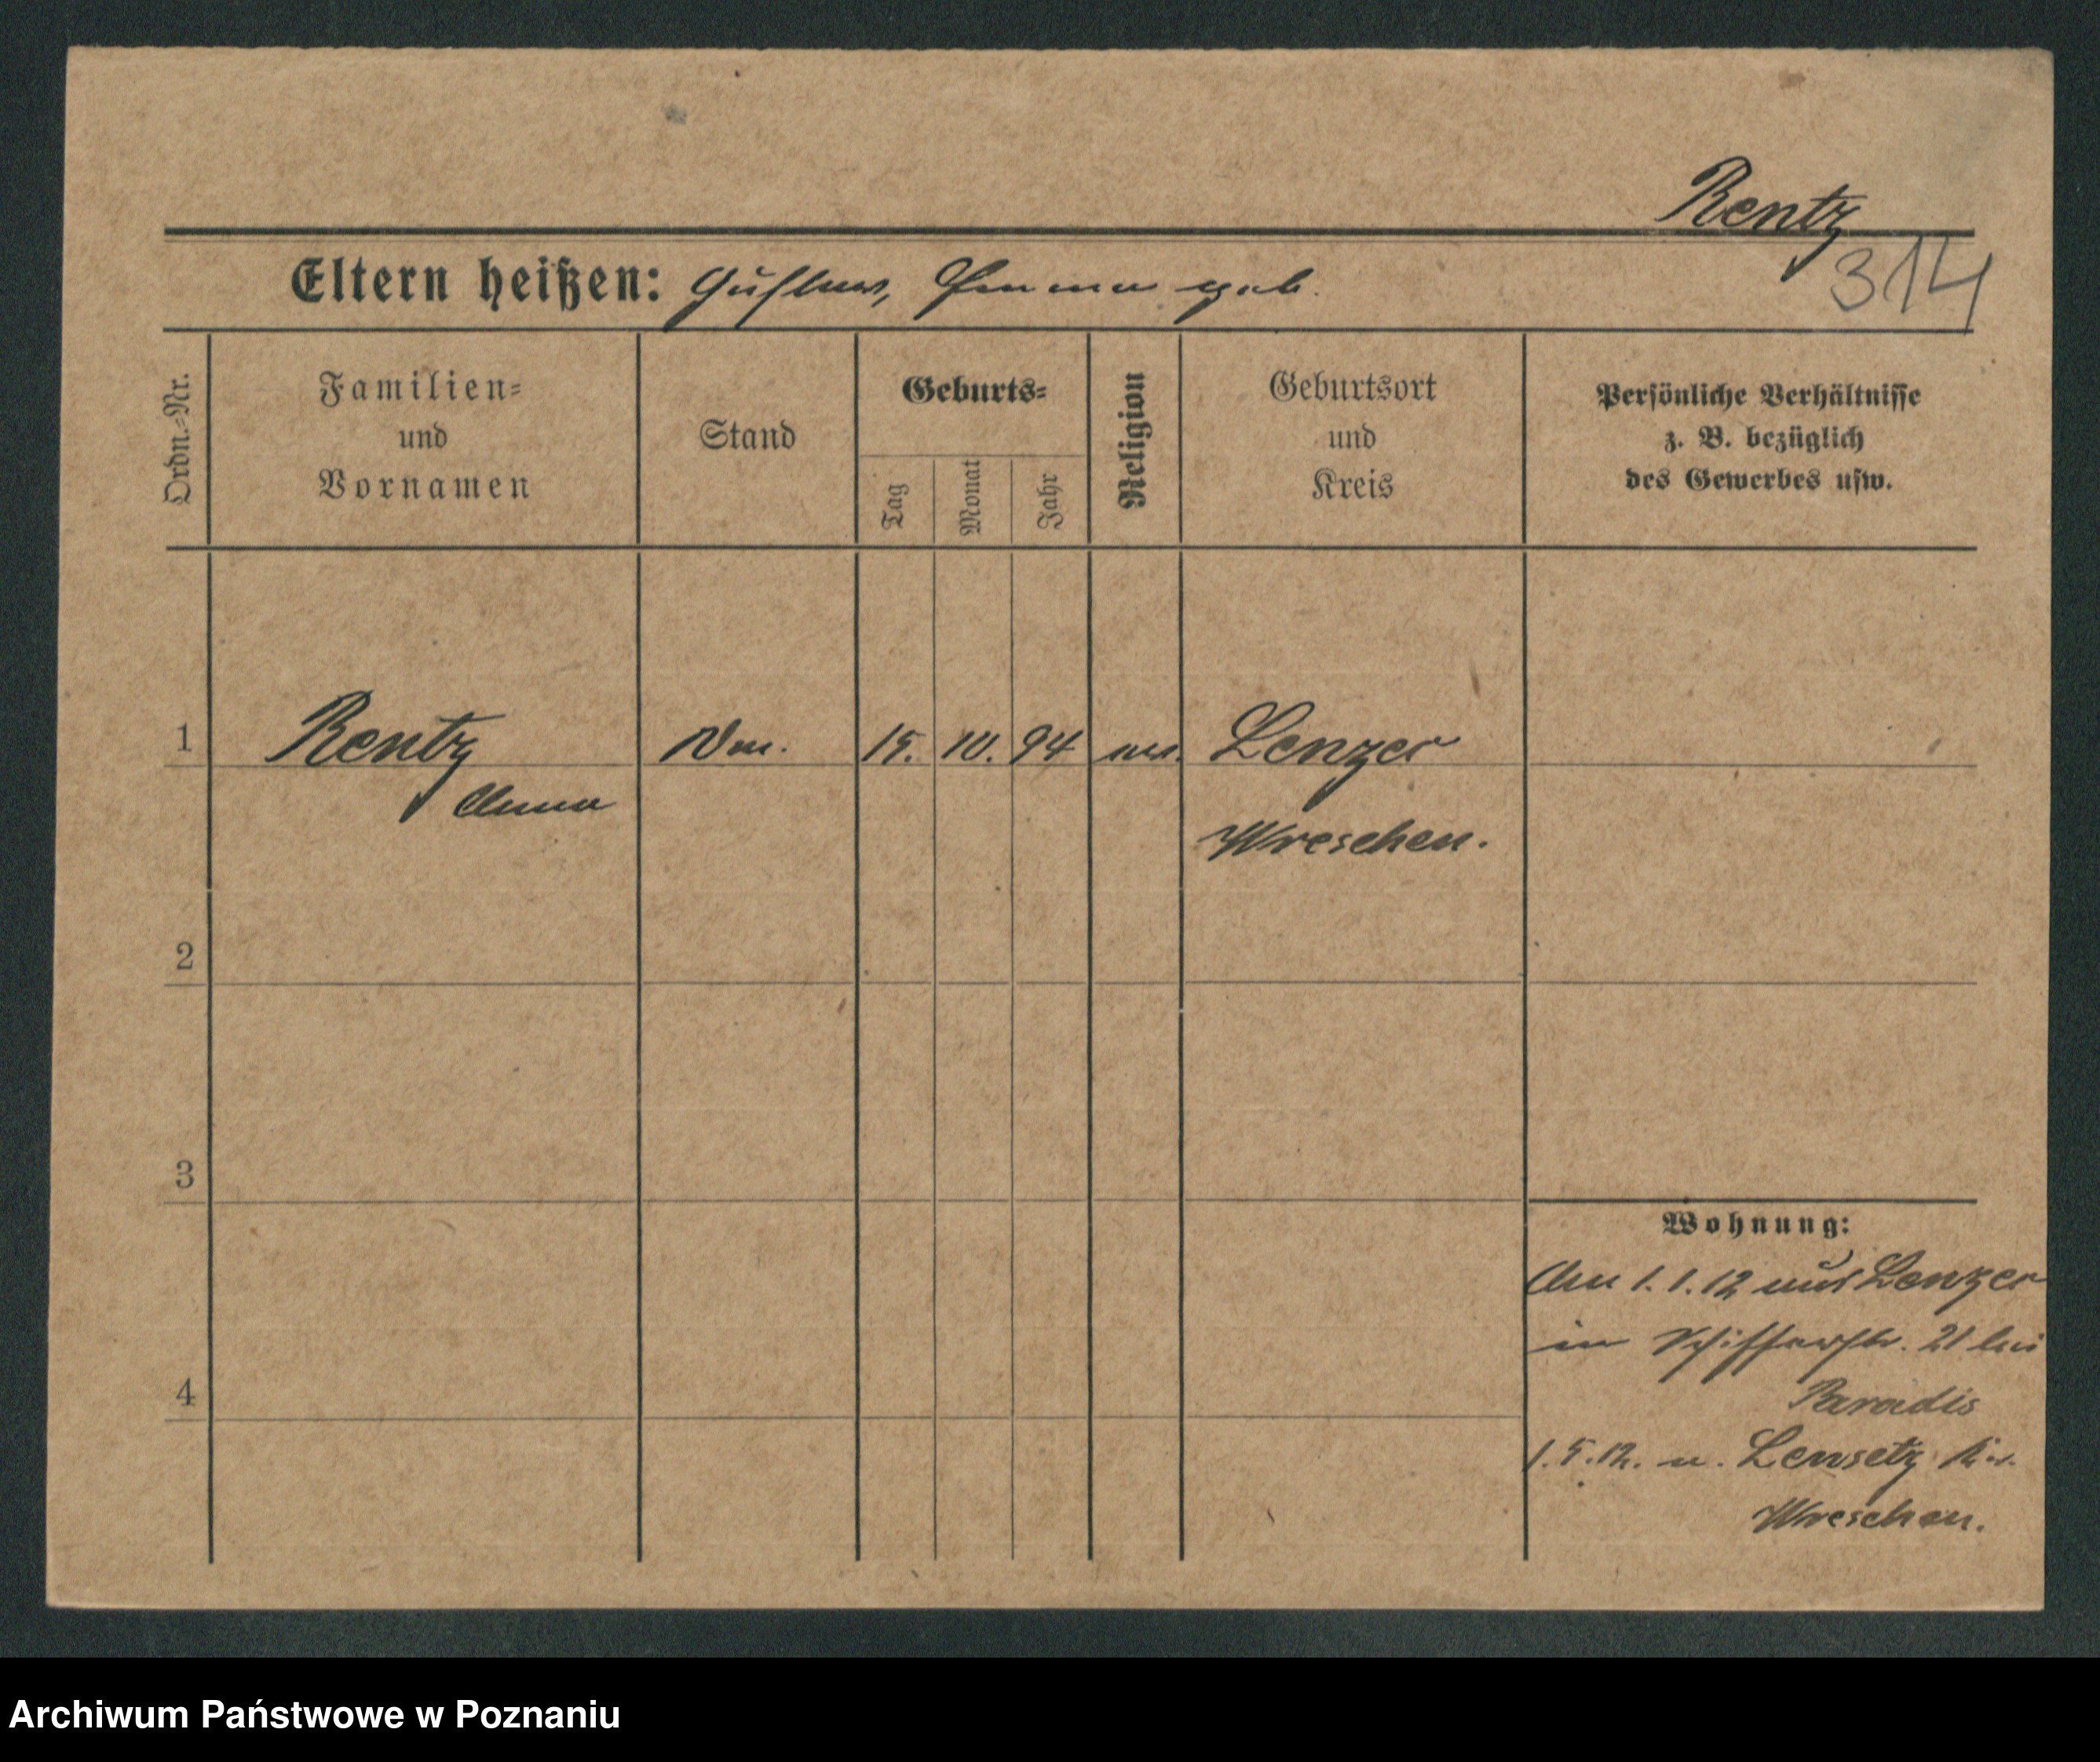 Rentz
314
Eltern heißen: Gustav, Emma geb.
Ordn.-Nr.
Familien-
und
Vornamen
Stand
Geburts-
Tag
Monat
Jahr
Religion
Geburtsort
und
Kreis
Persönliche Verhältnisse
z. B. bezüglich
des Gewerbes usw.
1 Rentz 15. 10. 94 ev. Lenzer
Anna
Wreschen.
2
3
4
Wohnung:
Am 1.1.12 aus Lenzer
in Schifferstr. 21 bei
Paradis
1.5.12. n. Lensetz Kr.
Wreschen.
Archiwum Państwowe w Poznaniu